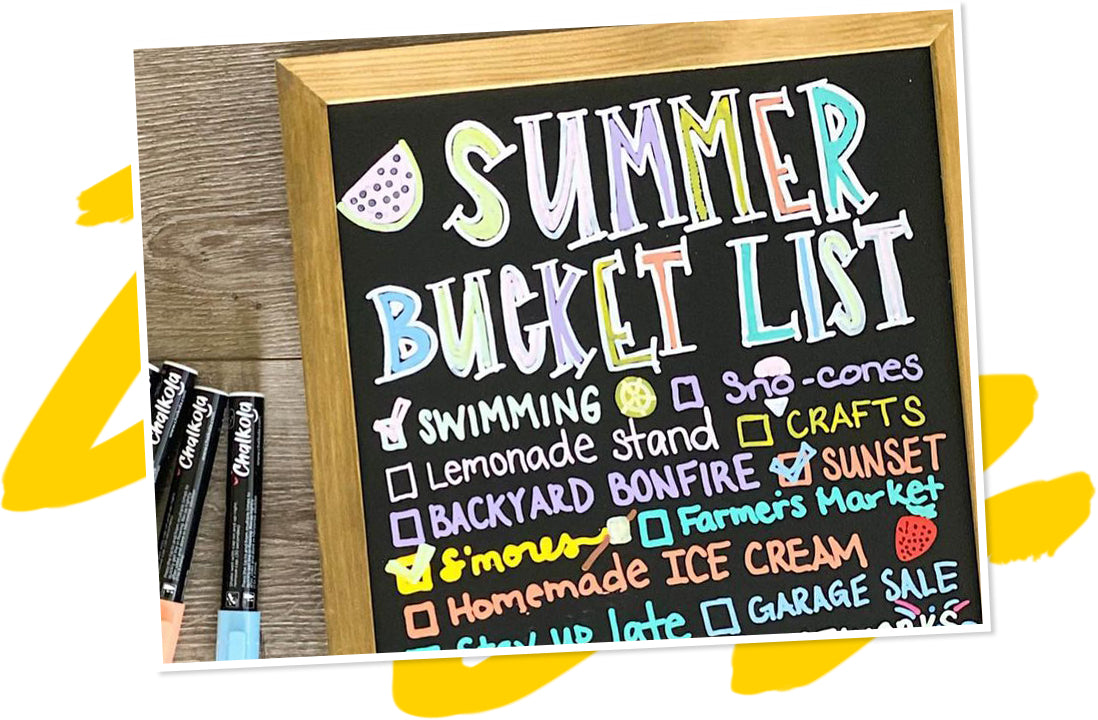 SUMMER
BUCKET LIST
SWIMMING Sno-cones
Lemonade stand CRAFTS
BACKYARD BONFIRE SUNSET
S'mores Farmer's Market
Homemade ICE CREAM
Stay up late GARAGE SALE
Chalkola
Chalkola
Chalkola